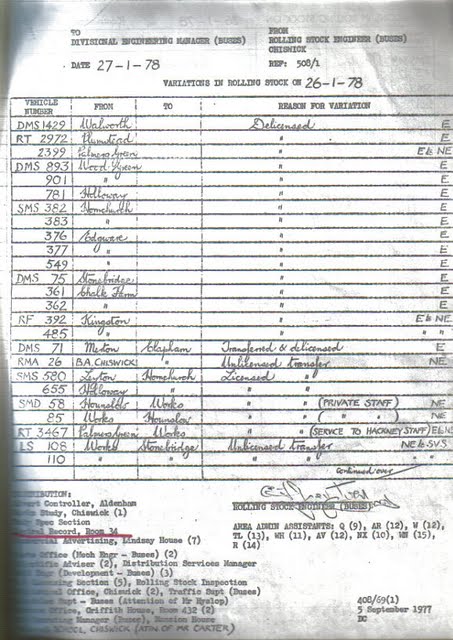 TO
DIVISIONAL ENGINEERING MANAGER (BUSES)
FROM
ROLLING STOCK ENGINEER (BUSES)
CHISWICK
DATE 27-1-78
REF: 508/1
VARIATIONS IN ROLLING STOCK ON 26-1-78
VEHICLE NUMBER FROM TO REASON FOR VARIATION
DMS 1429 Walworth Delicensed E
RT 2972 Plumstead " E
2399 Palmers Green " E & NE
DMS 893 Wood Green " E
901 " " E
781 Holloway " E
SMS 382 Hornchurch " E
383 " " E
376 Edgware " E
377 " " E
549 " E
DMS 75 Stonebridge " E
361 Chalk Farm " E
362 " " E
RF 392 Kingston " E & NE
485 " " " "
DMS 71 Merton Clapham Transferred & delicensed E
RMA 26 B.A. CHISWICK " Unlicensed transfer NE
SMS 580 Leyton Hornchurch Licensed "
655 Holloway " "
SMD 58 Hounslow Works " " (PRIVATE STAFF) NE
85 Works Hounslow " " ( " " ) NE
RT 3467 Palmers Green Works " " (SERVICE TO HACKNEY STAFF) E & NE
LS 108 Works Stonebridge Unlicensed Transfer NE & SVS
110 " " " "
continued over
ROLLING STOCK ENGINEER (BUSES)
AREA ADMIN ASSISTANTS: Q (9), AR (12), W (12),
TL (13), WH (11), AV (12), NX (10), WN (15),
R (14)
Controller, Aldenham
Study, Chiswick (1)
Spec Section
Record, Room 34
Advertising, Lindsay House (7)
Office (Mech Engr - Buses) (2)
Adviser (2), Distribution Services Manager
(Development - Buses) (3)
Section (5), Rolling Stock Inspection
Office, Chiswick (2), Traffic Supt (Buses)
Supt - Buses (Attention of Mr Hyslop)
Office, Griffith House, Room 432 (2)
Manager (Buses), Mansion House
SCHOOL, CHISWICK (ATTN OF MR CARTER)
408/69(1)
5 September 1977